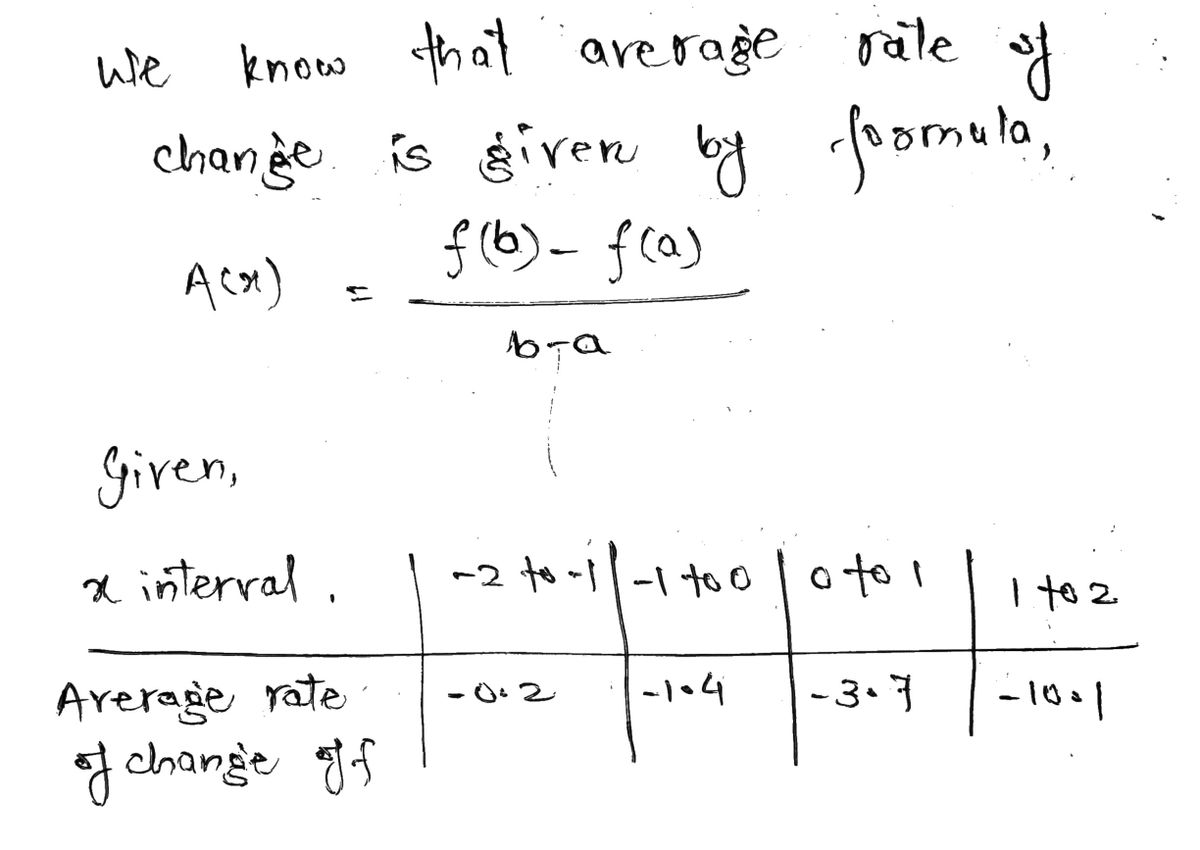 We know that average rate of
change is given by formula,
A(x) = f(b) - f(a)
b-a
Given,
x interval. | -2 to -1 | -1 to 0 | 0 to 1 | 1 to 2
Average rate | -0.2 | -1.4 | -3.7 | -10.1
of change of f